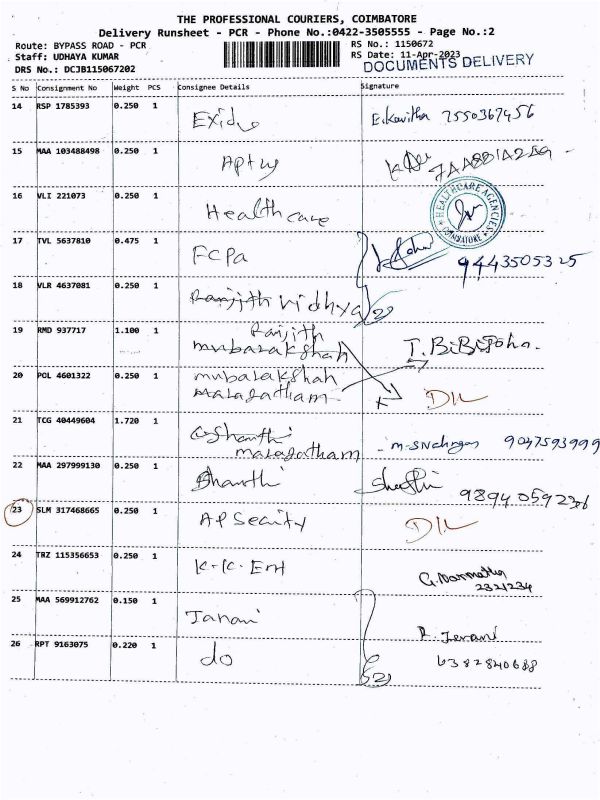 THE PROFESSIONAL COURIERS, COIMBATORE
Delivery Runsheet - PCR - Phone No.:0422-3505555 - Page No.:2
Route: BYPASS ROAD - PCR
Staff: UDHAYA KUMAR
DRS No.: DCJB115067202
RS No.: 1150672
RS Date: 11-Apr-2023
DOCUMENTS DELIVERY
S No Consignment No Weight PCS Consignee Details Signature
14 RSP 1785393 0.250 1 Exide E.Kavitha 7550367456
15 MAA 103488498 0.250 1
16 VLI 221073 0.250 1 Healthcare
HEALTHCARE AGENCIES
COIMBATORE
17 TVL 5637810 0.475 1 FCPa 9443505325
18 VLR 4637081 0.250 1 Ranjith vidhya
19 RMD 937717 1.100 1 Ranjith
mubarakshah
20 POL 4601322 0.250 1 mubarakshah
maragatham
21 TCG 40449604 1.720 1 Shanthi
maragatham 9047593999
22 MAA 297999130 0.250 1 Shanthi
23 SLM 317468665 0.250 1 AP Secaity
24 TRZ 115356653 0.250 1 K.K. Ent
25 MAA 569912762 0.150 1 Janani
26 RPT 9163075 0.220 1 do 6382840688